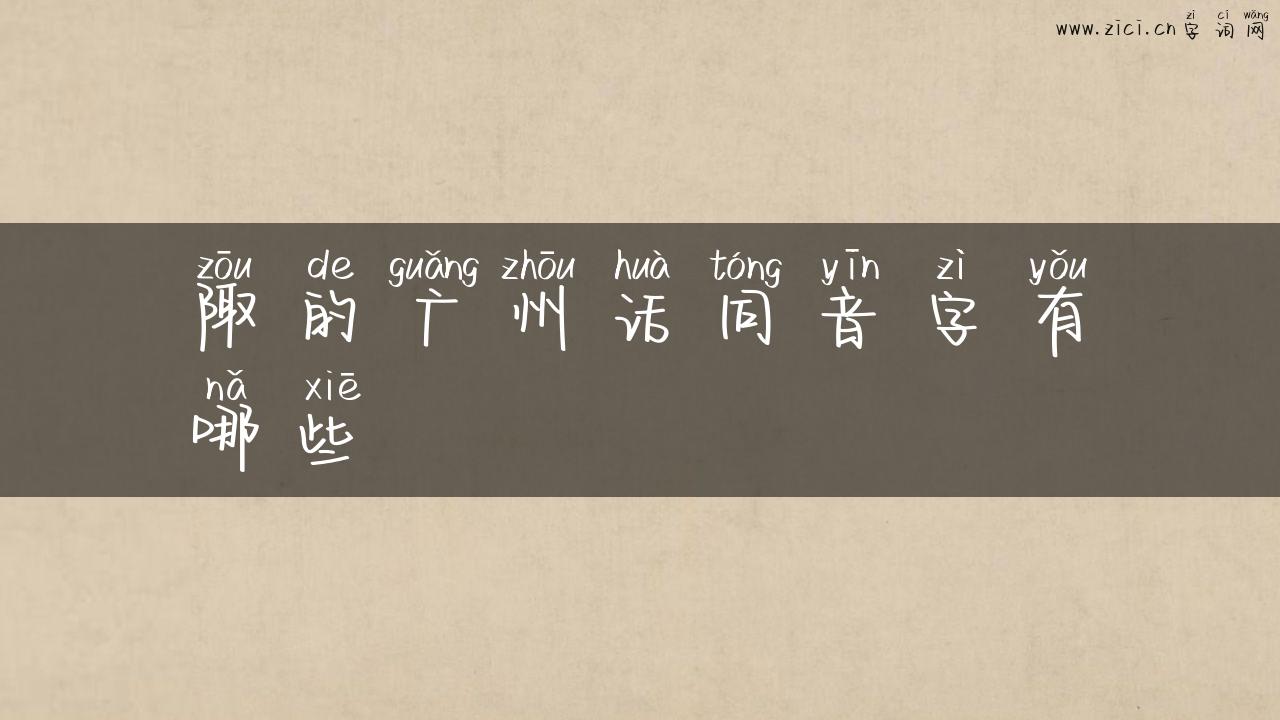 zì cí wǎng
www.zici.cn 字 词 网
zōu de guǎng zhōu huà tóng yīn zì yǒu
陬 的 广 州 话 同 音 字 有
nǎ xiē
哪 些